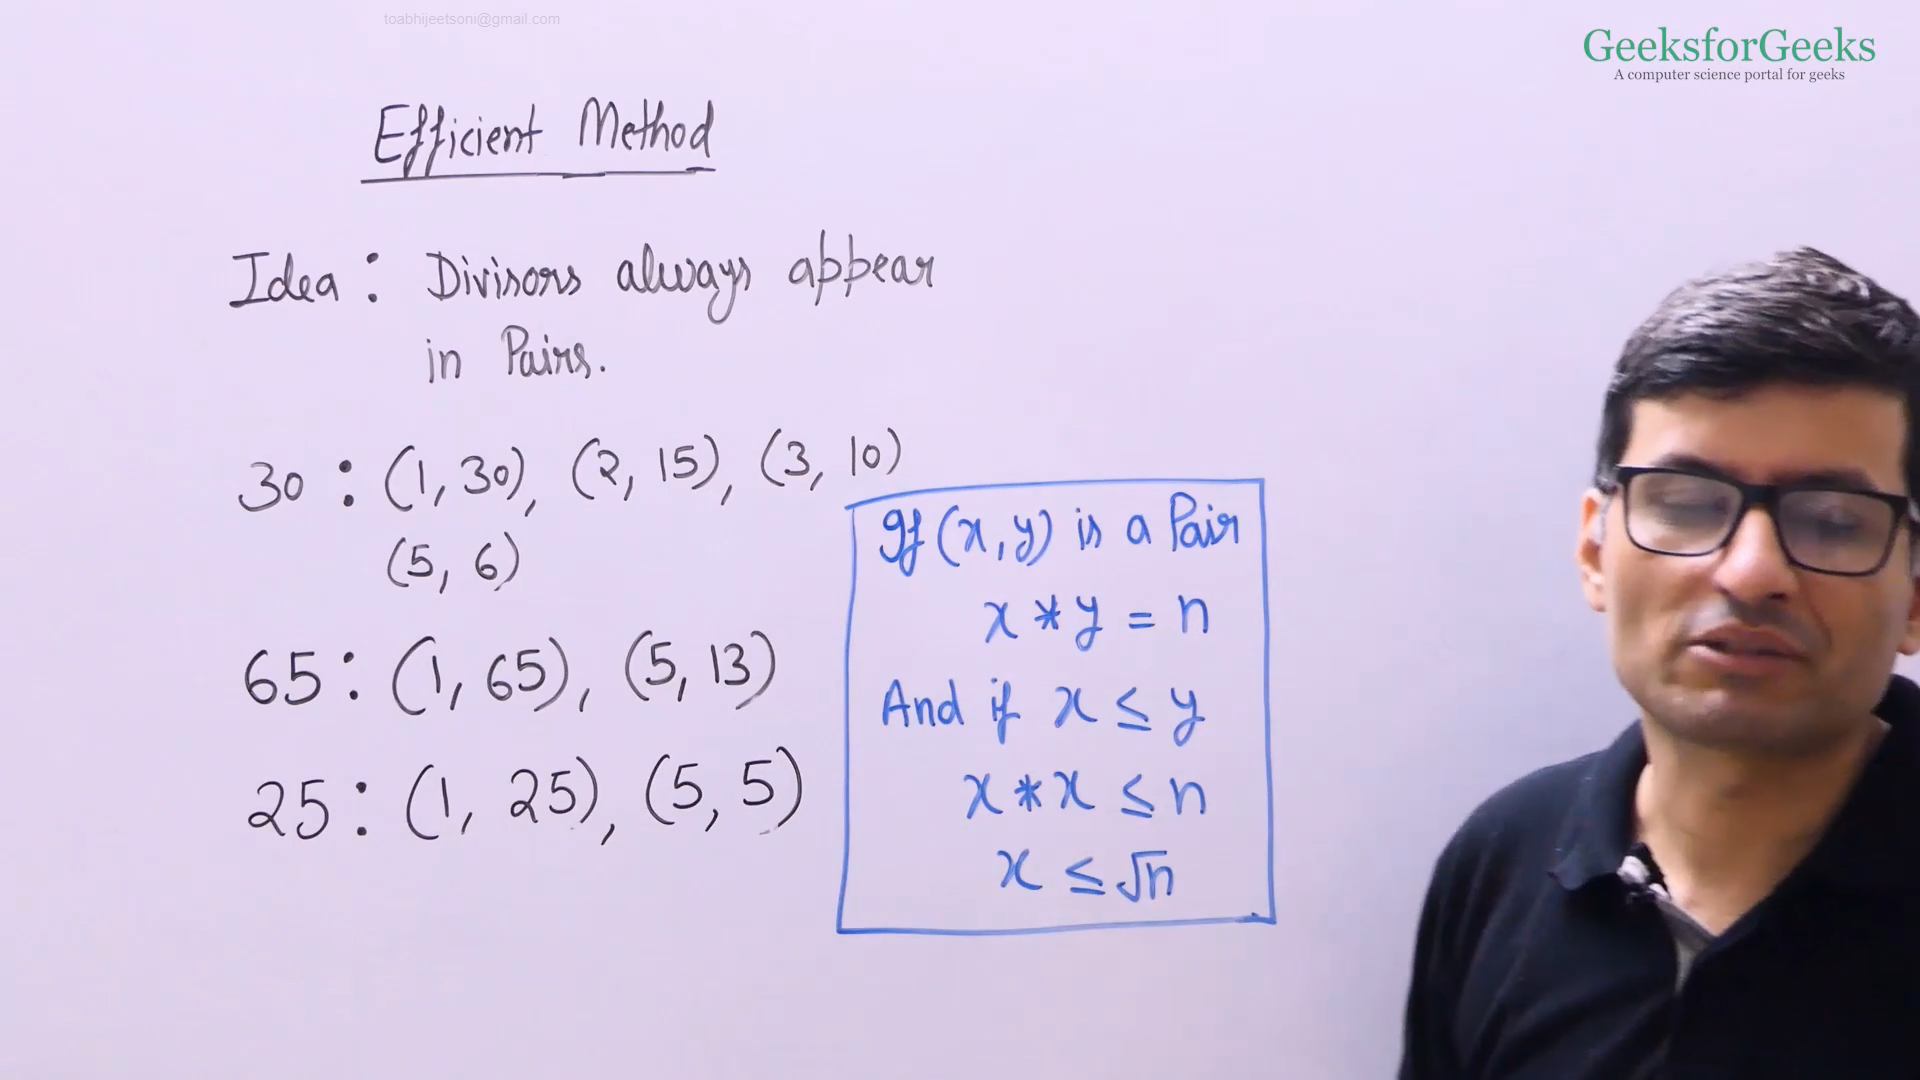 toabhijeetsoni@gmail.com
GeeksforGeeks
A computer science portal for geeks
Efficient Method
Idea : Divisors always appear
in Pairs.
30 : (1, 30), (2, 15), (3, 10)
(5, 6)
65 : (1, 65), (5, 13)
25 : (1, 25), (5, 5)
If (x, y) is a Pair
x * y = n
And if x ≤ y
x * x ≤ n
x ≤ √n